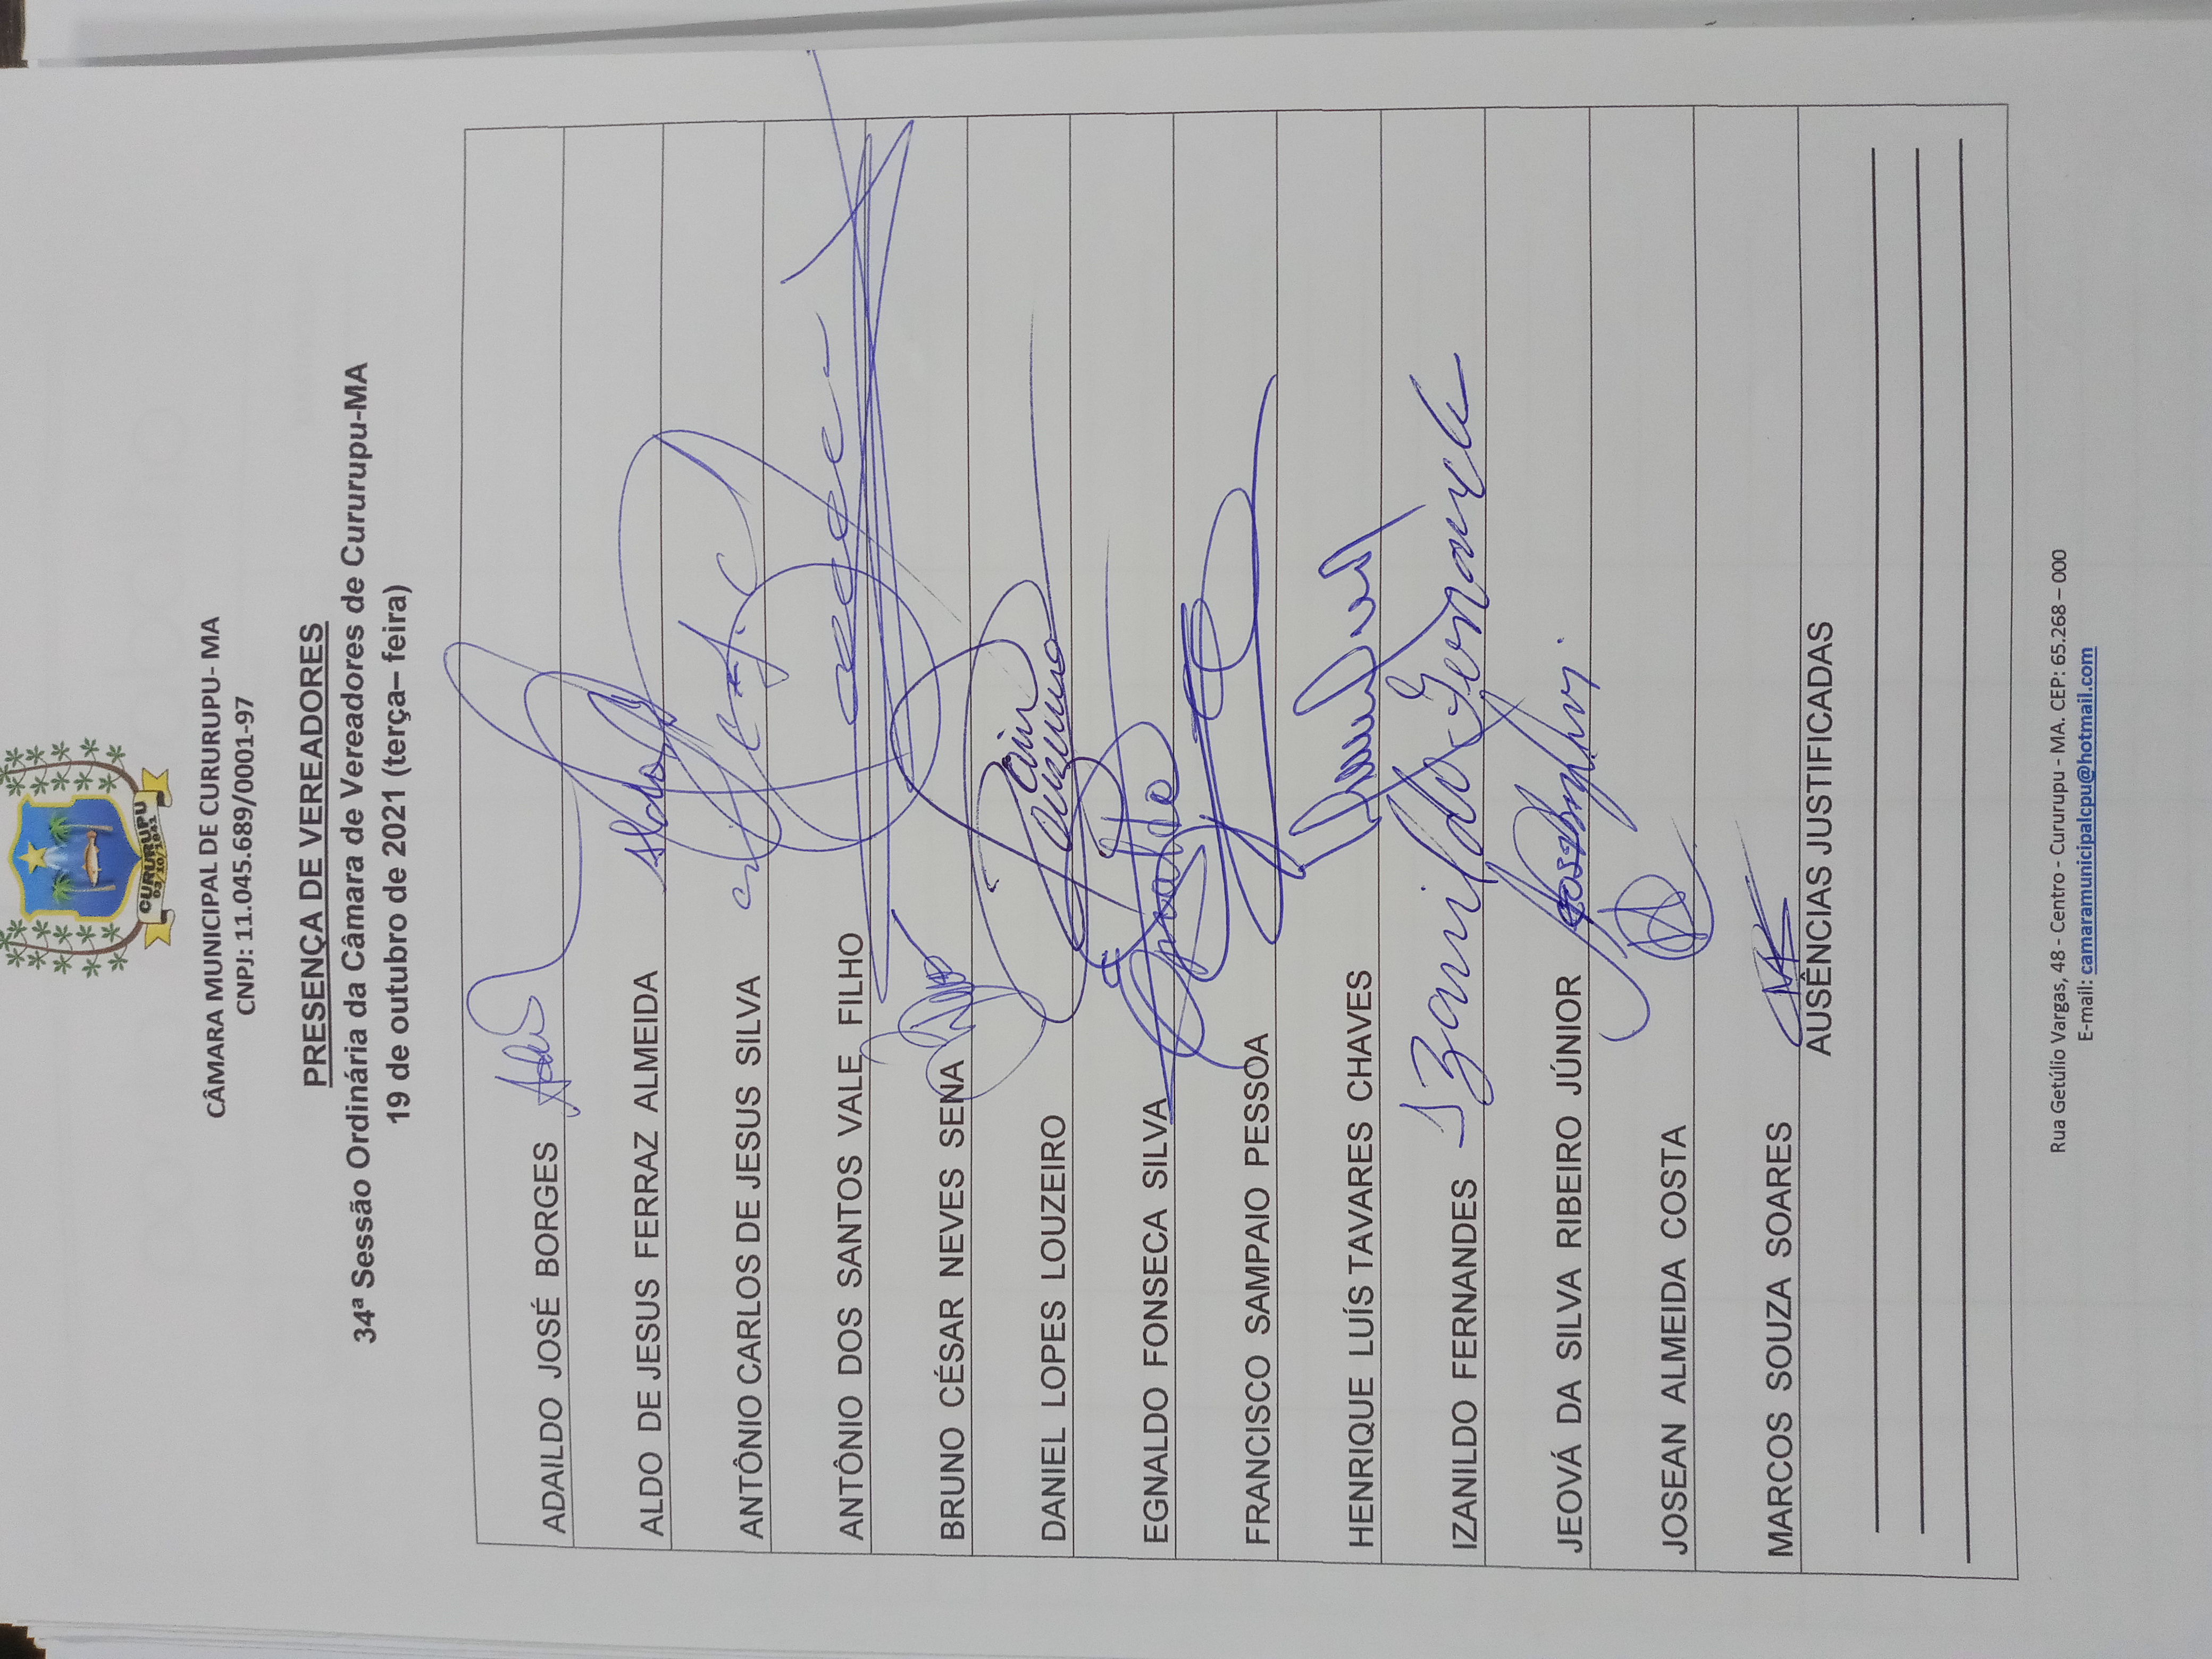 CURURUPU
03/10/1841
CÂMARA MUNICIPAL DE CURURUPU- MA
CNPJ: 11.045.689/0001-97
PRESENÇA DE VEREADORES
34ª Sessão Ordinária da Câmara de Vereadores de Cururupu-MA
19 de outubro de 2021 (terça– feira)
ADAILDO JOSÉ BORGES
ALDO DE JESUS FERRAZ ALMEIDA Aldo
ANTÔNIO CARLOS DE JESUS SILVA
ANTÔNIO DOS SANTOS VALE FILHO
BRUNO CÉSAR NEVES SENA
DANIEL LOPES LOUZEIRO
EGNALDO FONSECA SILVA
FRANCISCO SAMPAIO PESSOA
HENRIQUE LUÍS TAVARES CHAVES
IZANILDO FERNANDES Izanildo Fernandes
JEOVÁ DA SILVA RIBEIRO JÚNIOR
JOSEAN ALMEIDA COSTA
MARCOS SOUZA SOARES
AUSÊNCIAS JUSTIFICADAS
Rua Getúlio Vargas, 48 - Centro - Cururupu - MA. CEP: 65.268 – 000
E-mail: camaramunicipalcpu@hotmail.com